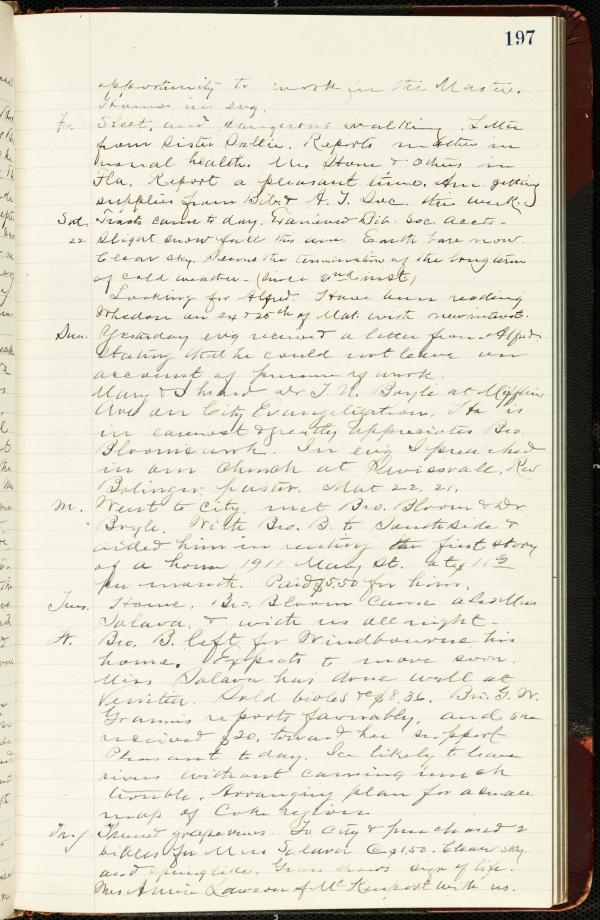 197
opportunity to work for the Master.
Home in evg.
Fr. Sleet, and dangerous walking. Letter
from Sister Sallie. Reports mother in
usual health. Mrs Stone & Others in
Fla. Report a pleasant time. Am getting
supplies from Bib. & A. T. Soc. this week.
Sat. Tracts came to day. Examined Bib. Soc. accts.-
22 Slight snow fall this morn. Earth bare now.
Clear sky. Seems the termination of the long term
of cold weather - (since 2nd inst.)
Looking for Alfred. Have been reading
on 24 & 25th of Mat. with new interest.
Sun. Yesterday evg received a letter from Alfred
stating that he could not leave on
account of pressure of work.
Mary & I heard Dr T. N. Boyle at Mifflin
Ave on City Evangelization. He is
in earnest & greatly appreciates Bro.
Blooms work. In evg I preached
in our church at Swissvale, Rev
Bolinger, pastor. Mat 22. 21.
M. Went to city, met Bro. Bloom & Dr.
Boyle. With Bro. B. to South Side &
aided him in renting the first story
of a house 1911 Mary St. at $11
per month. Paid $5.50 for him.
Tues. Home. Bro. Bloom came also Miss
Salava, & with us all night -
W. Bro. B. left for Windbourne his
home. Expects to move soon.
Miss Salava has done well at
Sold bibles $8.36. Bro. G. W.
reports favorably, and
received $20, toward her support
Pleasant to day. Ice likely to leave
rivers without causing much
trouble. Arranging plan for a small
map of Coke region
Th. Pruned grapevines. To City & purchased 2
bibles for Miss Salava $1.50. Clear sky
and springlike. Grass shows sign of life.
Mrs Annie Lawson of McKeesport with us.